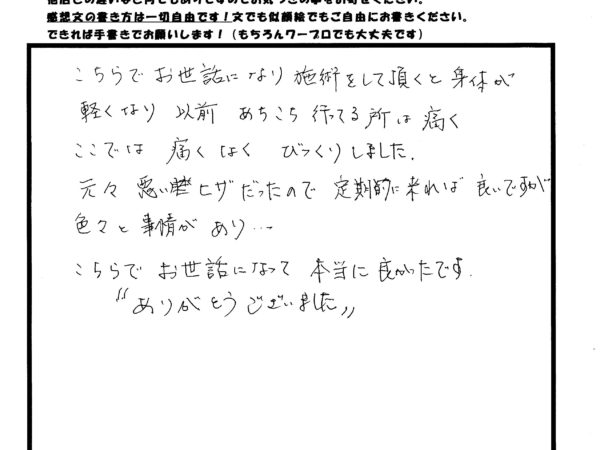 感想文の書き方は一切自由です！文でも似顔絵でもご自由にお書きください。
できれば手書きでお願いします！（もちろんワープロでも大丈夫です）
こちらで お世話になり 施術をして頂くと 身体が
軽くなり 以前 あちこち 行ってる 所は 痛く
ここでは 痛くはく びっくりしました.
元々 悪い ヒザだったので 定期的に来れば 良いですが
色々と 事情が あり…
こちらで お世話になって 本当に 良かったです.
〝ありがとうございました〟